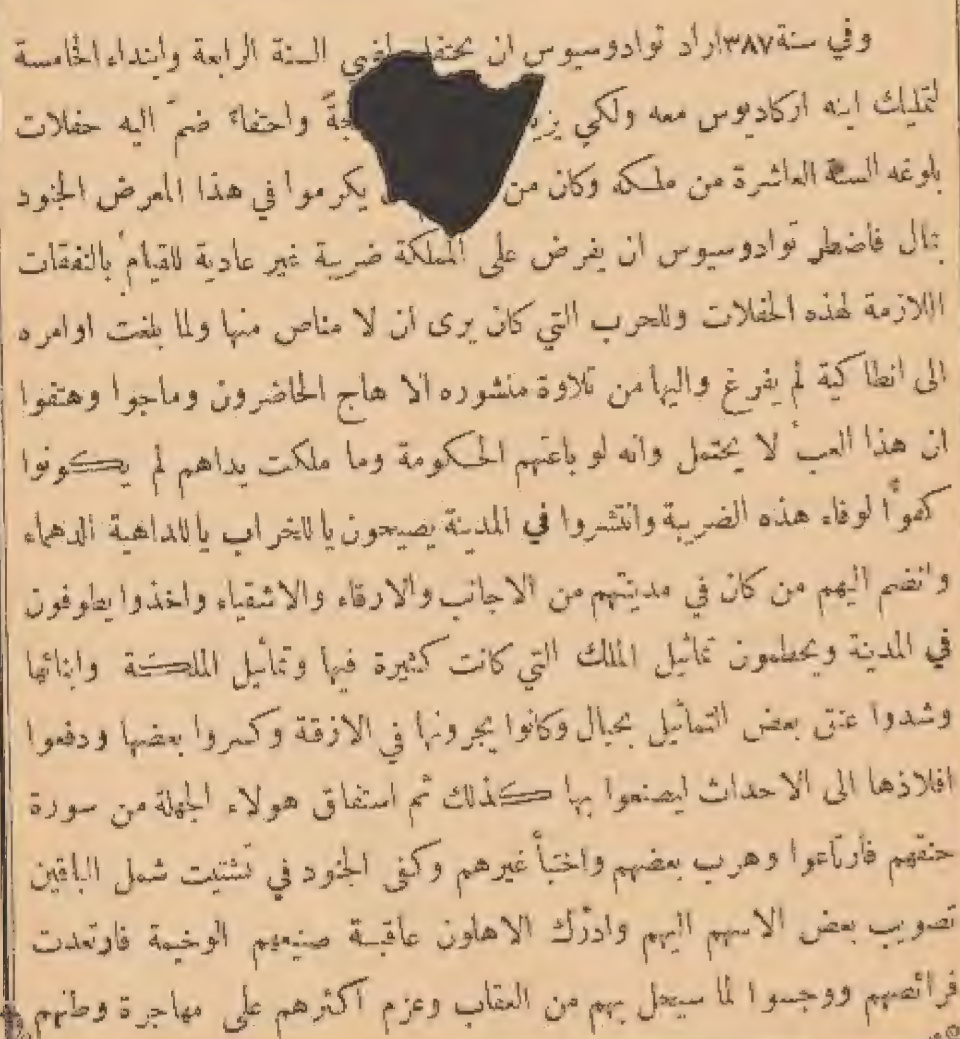 وفي سنة ٣٨٧ اراد توادوسيوس ان يحتفل السنة الرابعة وابتداء الخامسة
لتمليك ابنه اركاديوس معه ولكي واحتفاء ضم اليه حفلات
بلوغه السنة العاشرة من ملكه وكان من يكرموا في هذا المعرض الجنود
بمال فاضطر توادوسيوس ان يفرض على المملكة ضريبة غير عادية للقيام بالنفقات
اللازمة لهذه الحفلات وللحرب التي كان يرى ان لا مناص منها ولما بلغت اوامره
الى انطاكية لم يفرغ واليها من تلاوة منشوره الا هاج الحاضرون وماجوا وهتفوا
ان هذا العبء لا يحتمل وانه لو باعتهم الحكومة وما ملكت يداهم لم يكونوا
كفوءًا لوفاء هذه الضريبة وانتشروا في المدينة يصيحون يا للخراب يا للداهية الدهماء
وانضم اليهم من كان في مدينتهم من الاجانب والارقاء والاشقياء واخذوا يطوفون
في المدينة ويحطمون تماثيل الملك التي كانت كثيرة فيها وتماثيل الملكة وابنائها
وشدوا عنق بعض التماثيل بحبال وكانوا يجرونها في الازقة وكسروا بعضها ودفعوا
افلاذها الى الاحداث ليصنعوا بها كذلك ثم استفاق هولاء الجهلة من سورة
حنقهم فارتاعوا وهرب بعضهم واختبأ غيرهم وكفى الجنود في تشتيت شمل الباقين
تصويب بعض الاسهم اليهم وادرك الاهلون عاقبة صنيعهم الوخيمة فارتعدت
فرائصهم ووجسوا لما سيحل بهم من العقاب وعزم اكثرهم على مهاجرة وطنهم